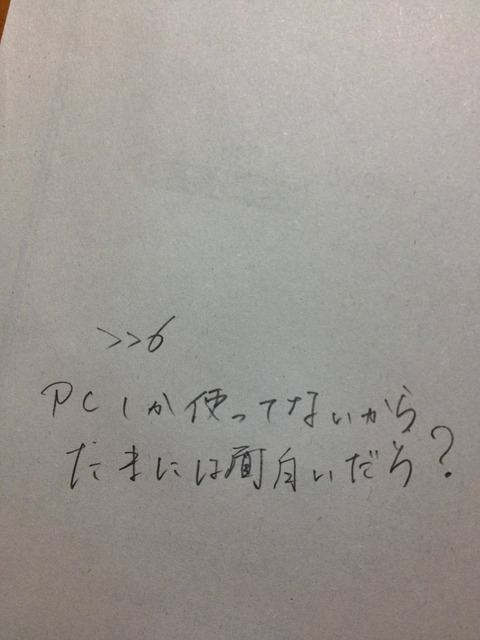 >>6
PCしか使ってないから
たまには面白いだろ?